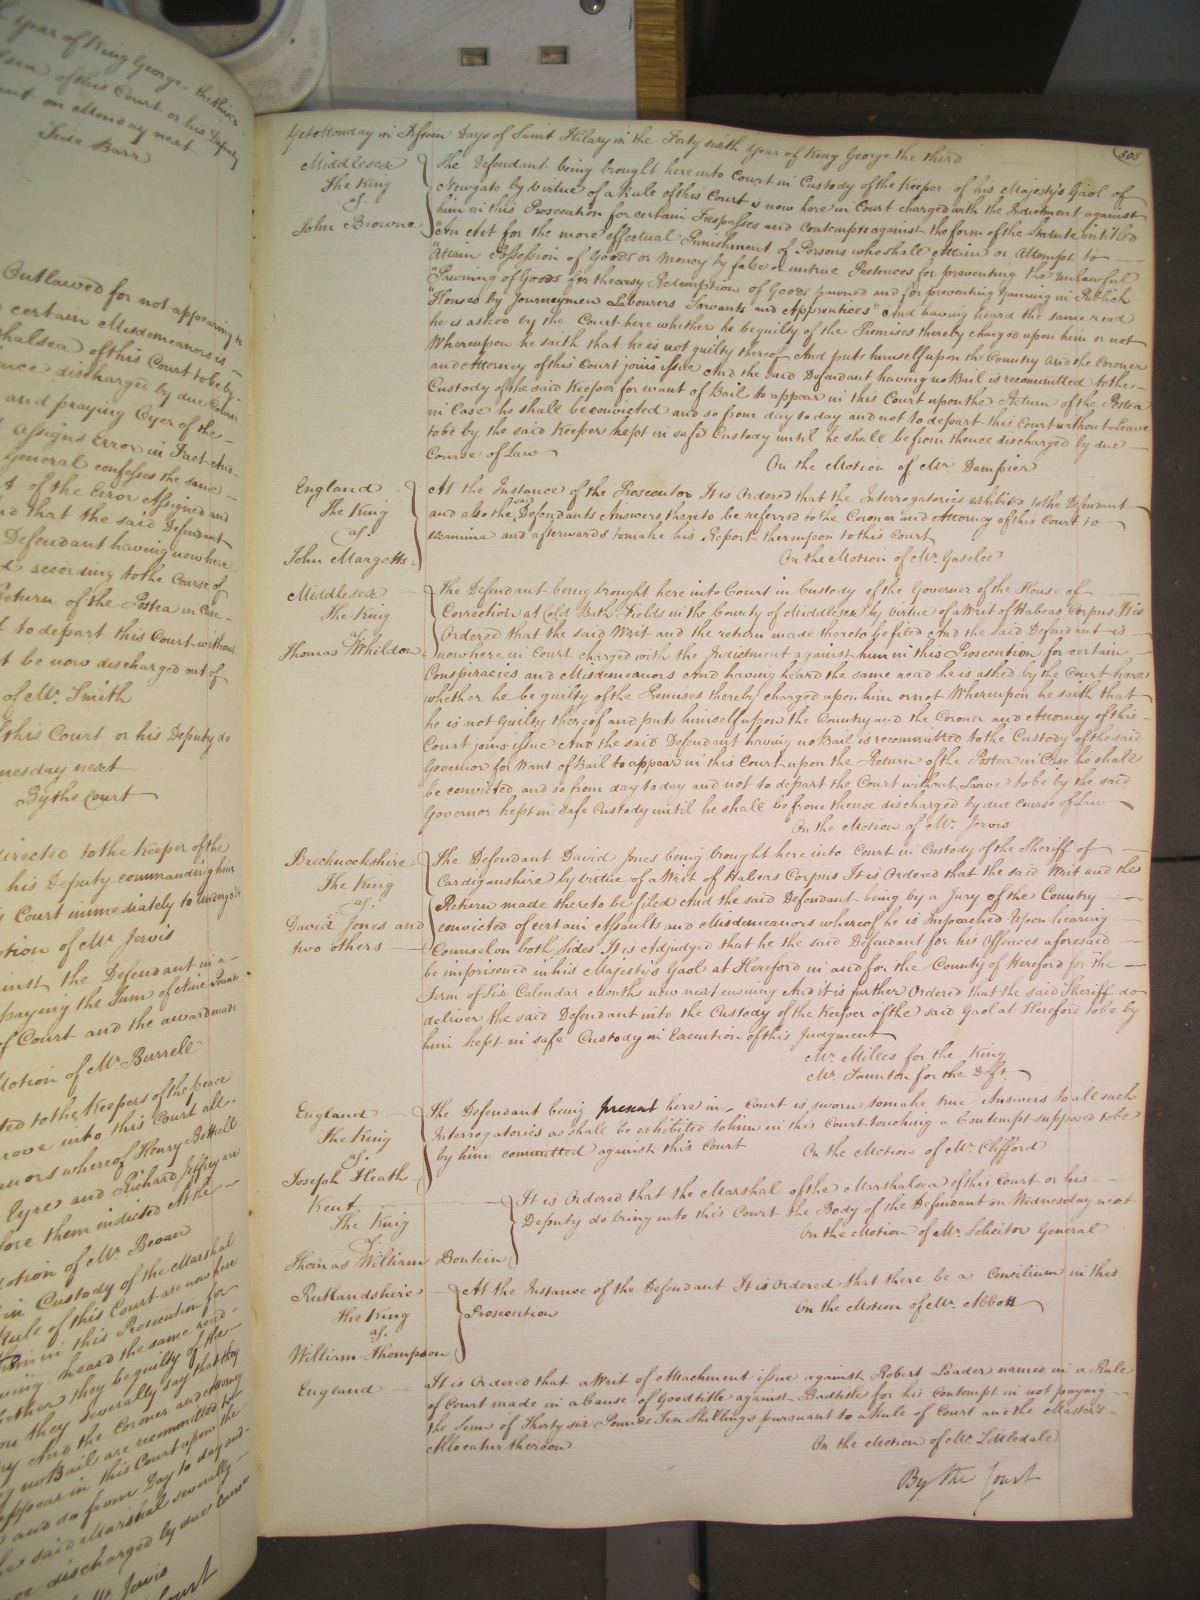 Year of King George the third
of this Court or his Deputy
on Monday next
Side Barr
Outlawed for not appearing to
certain Misdemeanors is
of this Court to be by
discharged by due Course
and praying Oyer of the
assigns Error in Fact And
General confesses the same
of the Error Assigned and
that the said Defendant
Defendant having now here
according to the Course of
Return of the Postea in Case
to depart this Court without
be now discharged out of
of Mr. Smith
this Court or his Deputy do
Wednesday next
By the Court
directed to the Keeper of the
his Deputy commanding him
Court immediately to undergo &c
Motion of Mr Jervis
against the Defendant in a
paying the Sum of Nine Pounds
of Court and the award made
Motion of Mr Burrell
to the Keepers of the peace
into this Court all
whereof Henry Bottrell
Eyre and Richard Jeffery are
before them indicted At the
Motion of Mr. Bevan
in Custody of the Marshal
Rule of this Court are now here
in this Prosecution for
heard the same read
whether they be guilty of the
they severally say that they
And the Coroner and Attorney
no Bail are recommitted to
appear in this Court upon the
and so from Day to day and
the said Marshal severally
discharged by due Course
Mr. Jervis
Court
505
Yet Monday in Fifteen Days of Saint Hilary in the Forty sixth Year of King George the third
Middlesex
The King
agt.
John Browne
The Defendant being brought here into Court in Custody of the Keeper of his Majesty's Gaol of
Newgate by virtue of a Rule of this Court is now here in Court charged with the Indictment against
him in this Prosecution for certain Trespasses and Contempts against the form of the Statute intitled
"An Act for the more effectual Punishment of Persons who shall attain or Attempt to
"Attain Possession of Goods or Money by false or untrue Pretences for preventing the unlawful
"Pawning of Goods for the easy Redemption of Goods pawned and for preventing Gaming in Publick
"Houses by Journeymen Labourers Servants and Apprentices" And having heard the same read
he is asked by the Court here whether he be guilty of the Premises thereby charged upon him or not
Whereupon he saith that he is not guilty thereof And puts himself upon the Country And the Coroner
and Attorney of this Court joins issue And the said Defendant having no Bail is recommitted to the
Custody of the said Keeper for want of Bail to appear in this Court upon the Return of the Postea
in Case he shall be convicted and so from day to day and not to depart this Court without Leave
to be by the said Keeper kept in safe Custody until he shall be from thence discharged by due
Course of Law
On the Motion of Mr. Dampier
England
The King
agt.
John Margetts
At the Instance of the Prosecutor It is Ordered that the Interrogatories exhibited to the Defendant
and also the said Defendants Answers thereto be referred to the Coroner and Attorney of this Court to
examine and afterwards to make his Report thereupon to this Court
On the Motion of Mr. Gaselee
Middlesex
The King
agt.
Thomas Whildon
The Defendant being brought here into Court in Custody of the Governor of the House of
Correction at Cold Bath Fields in the County of Middlesex by virtue of a Writ of Habeas Corpus It is
Ordered that the said Writ and the return made thereto be filed And the said Defendant is
now here in Court charged with the Indictment against him in this Prosecution for certain
Conspiracies and Misdemeanors And having heard the same read he is asked by the Court here
whether he be guilty of the Premises thereby charged upon him or not Whereupon he saith that
he is not Guilty thereof and puts himself upon the Country and the Coroner and Attorney of this
Court joins issue And the said Defendant having no Bail is recommitted to the Custody of the said
Governor for Want of Bail to appear in this Court upon the Return of the Postea in Case he shall
be convicted and so from day to day and not to depart the Court without Leave to be by the said
Governor kept in safe Custody until he shall be from thence discharged by due course of Law
On the Motion of Mr. Jervis
Brecknockshire
The King
agt.
David Jones and
two others
The Defendant David Jones being brought here into Court in Custody of the Sheriff of
Cardiganshire by virtue of a Writ of Habeas Corpus It is Ordered that the said Writ and the
Return made thereto be filed And the said Defendant being by a Jury of the Country
convicted of certain Assaults and Misdemeanors whereof he is impeached Upon hearing
Counsel on both sides It is Adjudged that he the said Defendant for his Offences aforesaid
be imprisoned in his Majesty's Gaol at Hereford in and for the County of Hereford for the
Term of Six Calendar Months now next ensuing And it is further Ordered that the said Sheriff do
deliver the said Defendant into the Custody of the Keeper of the said Gaol at Hereford to be by
him kept in safe Custody in Execution of this Judgment
Mr. Milles for the King
Mr. Taunton for the Deft.
England
The King
agt.
Joseph Heath
The Defendant being present here in Court is sworn to make true Answers to all such
Interrogatories as shall be exhibited to him in this Court touching a Contempt supposed to be
by him committed against this Court
On the Motion of Mr. Clifford
Kent
The King
agt.
Thomas William Bontein
It is Ordered that the Marshal of the Marshalsea of this Court or his
Deputy do bring into this Court the Body of the Defendant on Wednesday next
On the Motion of Mr. Solicitor General
Rutlandshire
The King
agt.
William Thompson
At the Instance of the Defendant It is Ordered that there be a Consilium in this
Prosecution
On the Motion of Mr. Abbott
England
It is Ordered that a Writ of Attachment issue against Robert Loader named in a Rule
of Court made in a Cause of Goodtitle against Badtitle for his Contempt in not paying
the Sum of Thirty six Pounds Ten Shillings pursuant to a Rule of Court and the Master's
Allocatur thereon
On the Motion of Mr. Littledale
By the Court